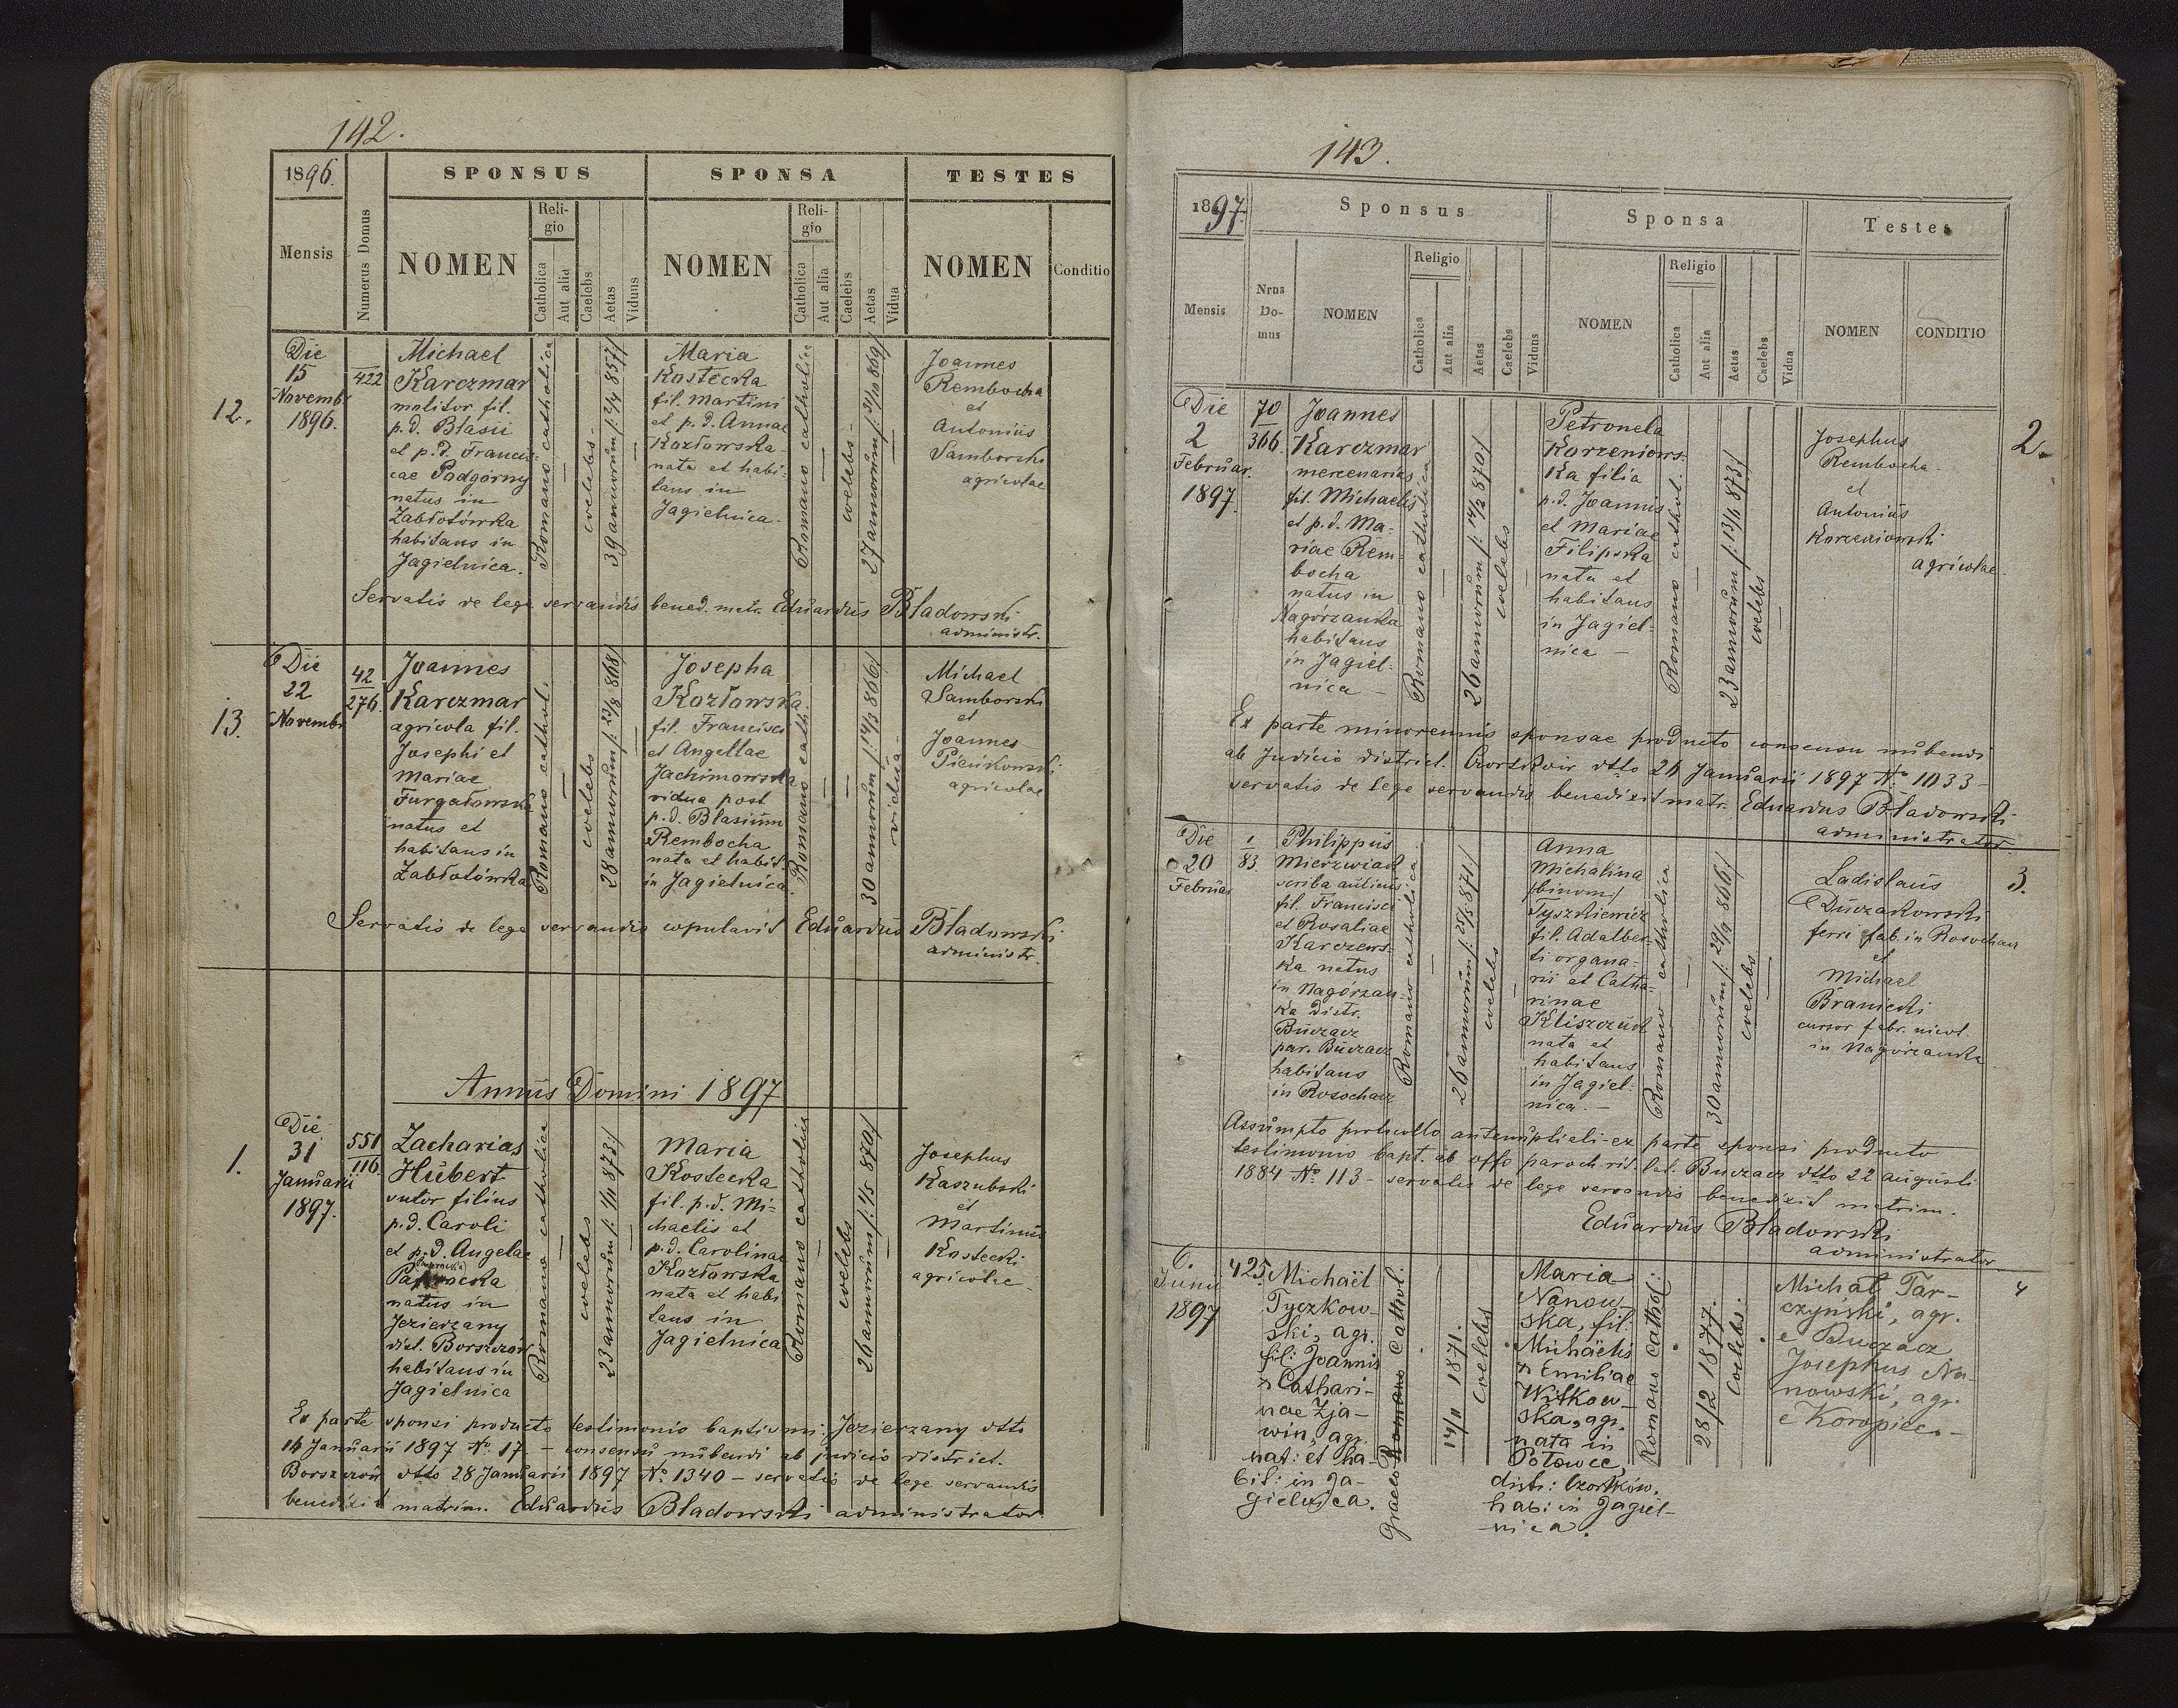 142.
1896.
SPONSUS
SPONSA
TESTES
Mensis
Numerus Domus
NOMEN
Religio
Catholica
Aut alia
Caelebs
Aetas
Viduus
NOMEN
Religio
Catholica
Aut alia
Caelebs
Aetas
Vidua
NOMEN
Conditio
12.
Die
15
Novembr
1896.
422
Michael
Karczmar
molitor fil.
p.d. Blasii
et p.d. Francis-
cae Podgórny
natus in
Zabłotówka
habitans in
Jagielnica.
Romano catholica
coelebs
39 annorum /: 2/4 857/
Maria
Kostecka
fil. Martini
et p.d. Annae
Kozłowska
nata et habi-
tans in
Jagielnica.
Romano catholica
coelebs
27 annorum /: 31/10 869/
Joannes
Rembocha
et
Antonius
Samborski
agricolae
Servatis de lege servandis bened. matr. Eduardus Bładowski
administr.
13.
Die
22
Novembr
42
276.
Joannes
Karczmar
agricola fil.
Josephi et
Mariae
Furgałowska
natus et
habitans in
Zabłotówka
Romano cathol.
coelebs
28 annorum /: 23/8 868/
Josepha
Kozłowska
fil. Francisci
et Angellae
Jachimowska
vidua post
p.d. Blasium
Rembocha
nata et habit.
in Jagielnica.
Romano cath.
30 annorum /: 14/3 866/
vidua
Michael
Samborski
et
Joannes
Pieńkowski
agricolae
Servatis de lege servandis copulavit Eduardus Bładowski
administr.
Annus Domini 1897
1.
Die
31
Januarii
1897.
551
116.
Zacharias
Hubert
sutor filius
p.d. Caroli
et p.d. Angelae
natus in
Jezierzany
dist. Borszczów
habitans in
Jagielnica
Romano catholica
coelebs
23 annorum /: 1/11 873/
Maria
Kostecka
fil. p.d. Mi-
chaelis et
p.d. Carolinae
Kozłowska
nata et habi
tans in
Jagielnica
Romano catholica
coelebs
26 annorum /: 1/5 870/
Josephus
Kaszubski
et
Martinus
Kostecki
agricolae
Ex parte sponsi producto testimonio baptismi: Jezierzany dtto
16 Januarii 1897 No. 17. – consensu nubendi ab judicio district.
Borszczów dtto 28 Januarii 1897 No 1340 – servatis de lege servandis
benedixit matrim. Eduardus Bładowski administrator
143.
1897.
Sponsus
Sponsa
Testes
Mensis
Nrus
Do-
mus
NOMEN
Religio
Catholica
Aut alia
Aetas
Caelebs
Viduus
NOMEN
Religio
Catholica
Aut alia
Aetas
Caelebs
Vidua
NOMEN
CONDITIO
Die
2
Februar.
1897.
70
366.
Joannes
Karczmar
mercenarius
fil. Michaelis
et p.d. Ma-
riae Rem-
bocha
natus in
Nagórzanka
habitans
in Jagiel-
nica –
Romano catholica
26 annorum /: 14/2 870/
coelebs
Petronela
Korzeniows-
ka filia
p.d. Joannis
et Mariae
Filipska
nata et
habitans
in Jagiel-
nica –
Romano cathol.
23 annorum /: 13/6 873/
coelebs
Josephus
Rembocha
et
Antonius
Korzeniowski
agricolae.
2.
Ex parte minorennis sponsae producto consensu nubendi
ab Judicio district. Czortków dtto 26 Januarii 1897 No. 1033 –
servatis de lege servandis benedixit matr. Eduardus Bładowski
administrator.
Die
20
Februar
1
83.
Philippus
Mierzwiak
scriba
fil. Francisci
et Rosaliae
Karczews-
ka natus
in Nagórzan-
ka Distr.
Buczacz
par. Buczacz
habitans
in Rosochacz
Romano catholica
26 annorum /: 25/5 871/
coelebs
Anna
Michalina
/binom:/
Tyszkiewicz
fil. Adalber-
ti organa-
rii et Catha-
rinae
Kliszczuk
nata et
habitans
in Jagiel-
nica. –
Romano catholica
30 annorum /: 29/9 866/
coelebs
Ladislaus
Duczakowski
ferri fab. in Rosochacz
et
Michael
Braniecki
cursor fabr. nicot.
in Nagórzanka
3.
Assumpto protocollo antenuptiali – ex parte sponsi producto
testimonio bapt. ab offo paroch. rit. lat. Buczacz dtto 22 augusti
1884 No 113 – servatis de lege servandis benedixit matrim.
Eduardus Bładowski
administrator
6.
Junii
1897
425.
Michaël
Tyczkow-
ski, agr.
fil: Joannis
& Cathari-
nae Zja-
win, agr.
nat: et ha-
bit: in Ja-
gielnica.
Graeco Romano Cathol:
14/11 1871.
Coelebs
Maria
Nanow-
ska, fil.
Michaëlis
& Emiliae
Witkow-
ska, agr.
nata in
Połowce,
distr: Czortków.
hab: in Jagiel-
nica.
Romano Cathol:
28/2 1877.
Coelebs:
Michał Tar-
czyński, agr.
e Buczacz
Josephus Na-
nowski, agr.
e Koropiec. –
4